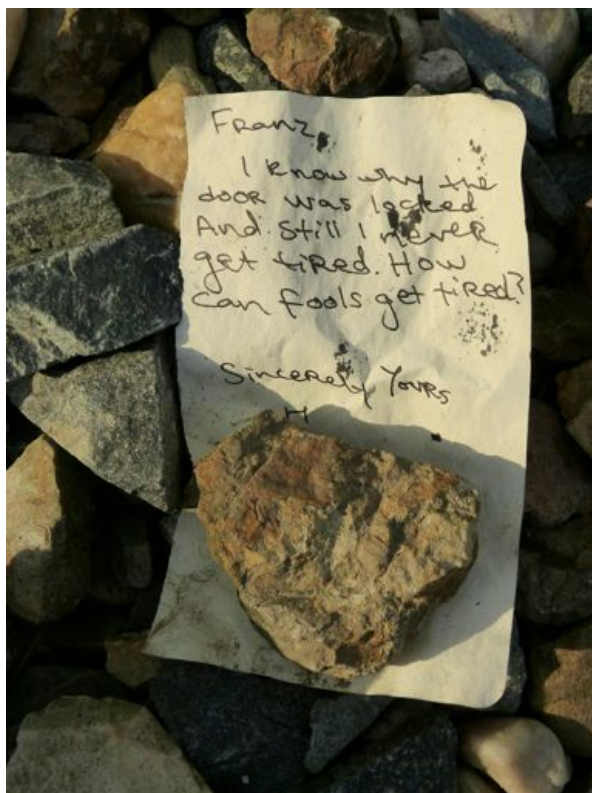 Franz,
I know why the
door was locked
And still I never
get tired. How
can fools get tired?
Sincerely Yours
H